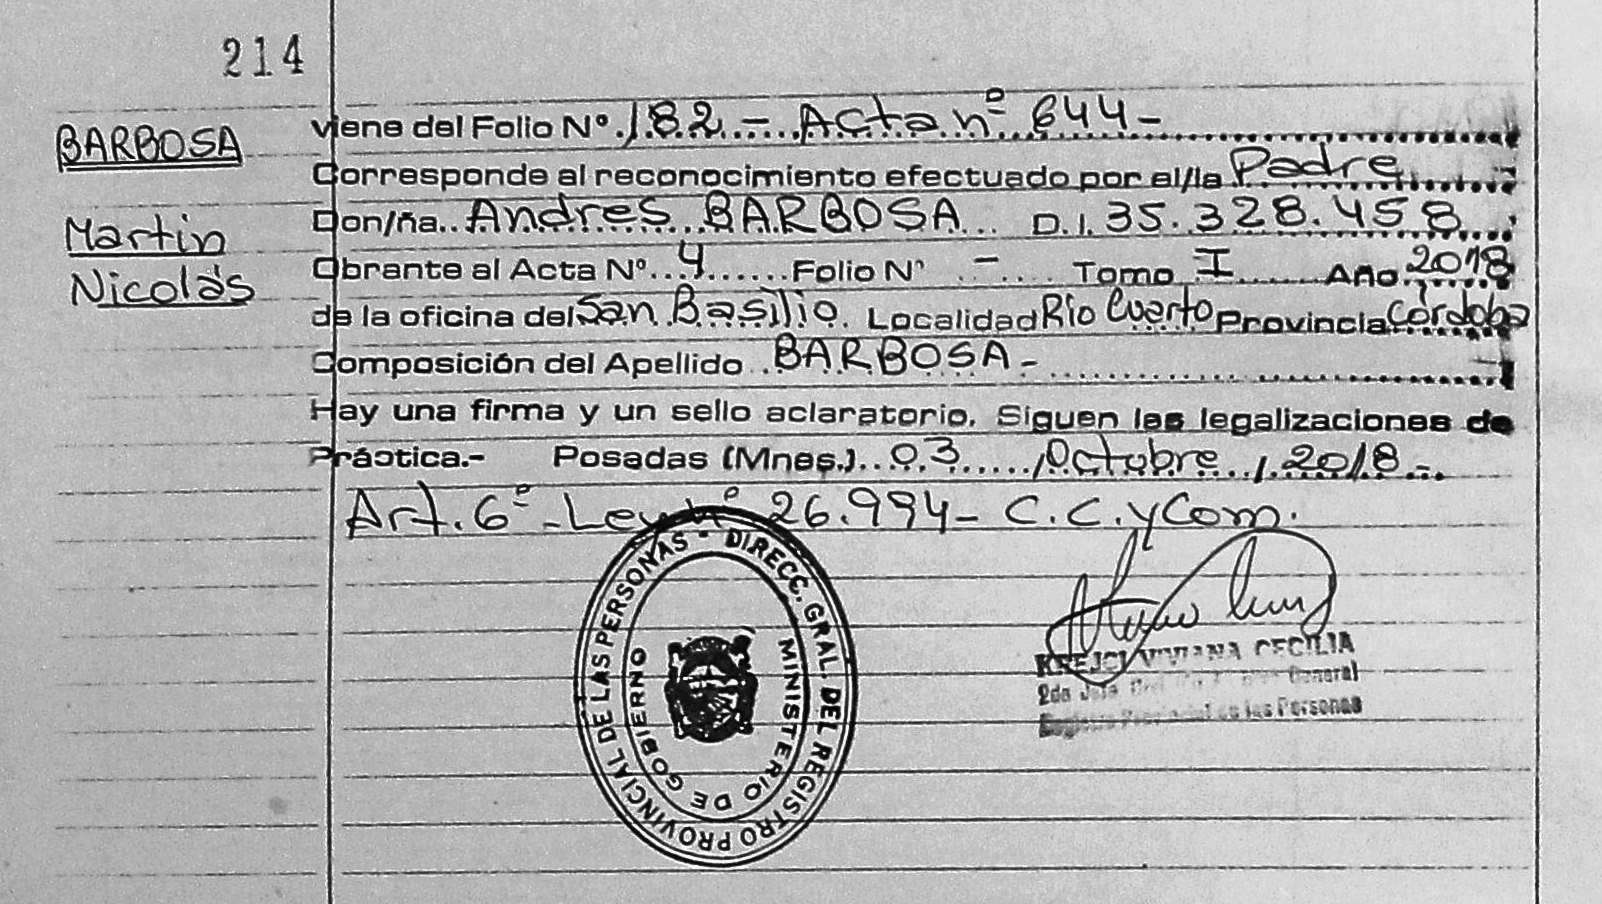 214
BARBOSA
Martin
Nicolás
viene del Folio Nº 182 - Acta nº 644-
Corresponde al reconocimiento efectuado por el/la Padre
Don/ña Andres BARBOSA D.I. 35.328.458
Obrante al Acta Nº 4 Folio Nº - Tomo I Año 2018
de la oficina del San Basilio Localidad Río Cuarto Provincia Córdoba
Composición del Apellido BARBOSA-
Hay una firma y un sello aclaratorio. Siguen las legalizaciones de
Práctica.- Posadas (Mnes.) 03 / Octubre / 2018-
Art. 6º - Ley nº 26.994- C.C. y Com.
DIRECC. GRAL. DEL REGISTRO PROVINCIAL DE LAS PERSONAS -
MINISTERIO DE GOBIERNO
KREJCI VIVIANA CECILIA
2da Jefe General
Registro Provincial de las Personas